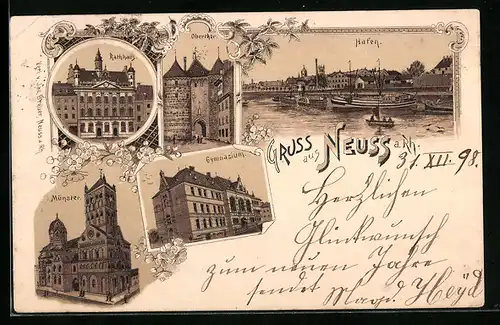 Rathhaus.
Oberthor.
Hafen.
GRUSS aus NEUSS a. Rh.
Gymnasium.
Münster.
31. XII. 98.
Herzlichen
Glückwunsch
zum neuen Jahre
sendet Magd. Heyd